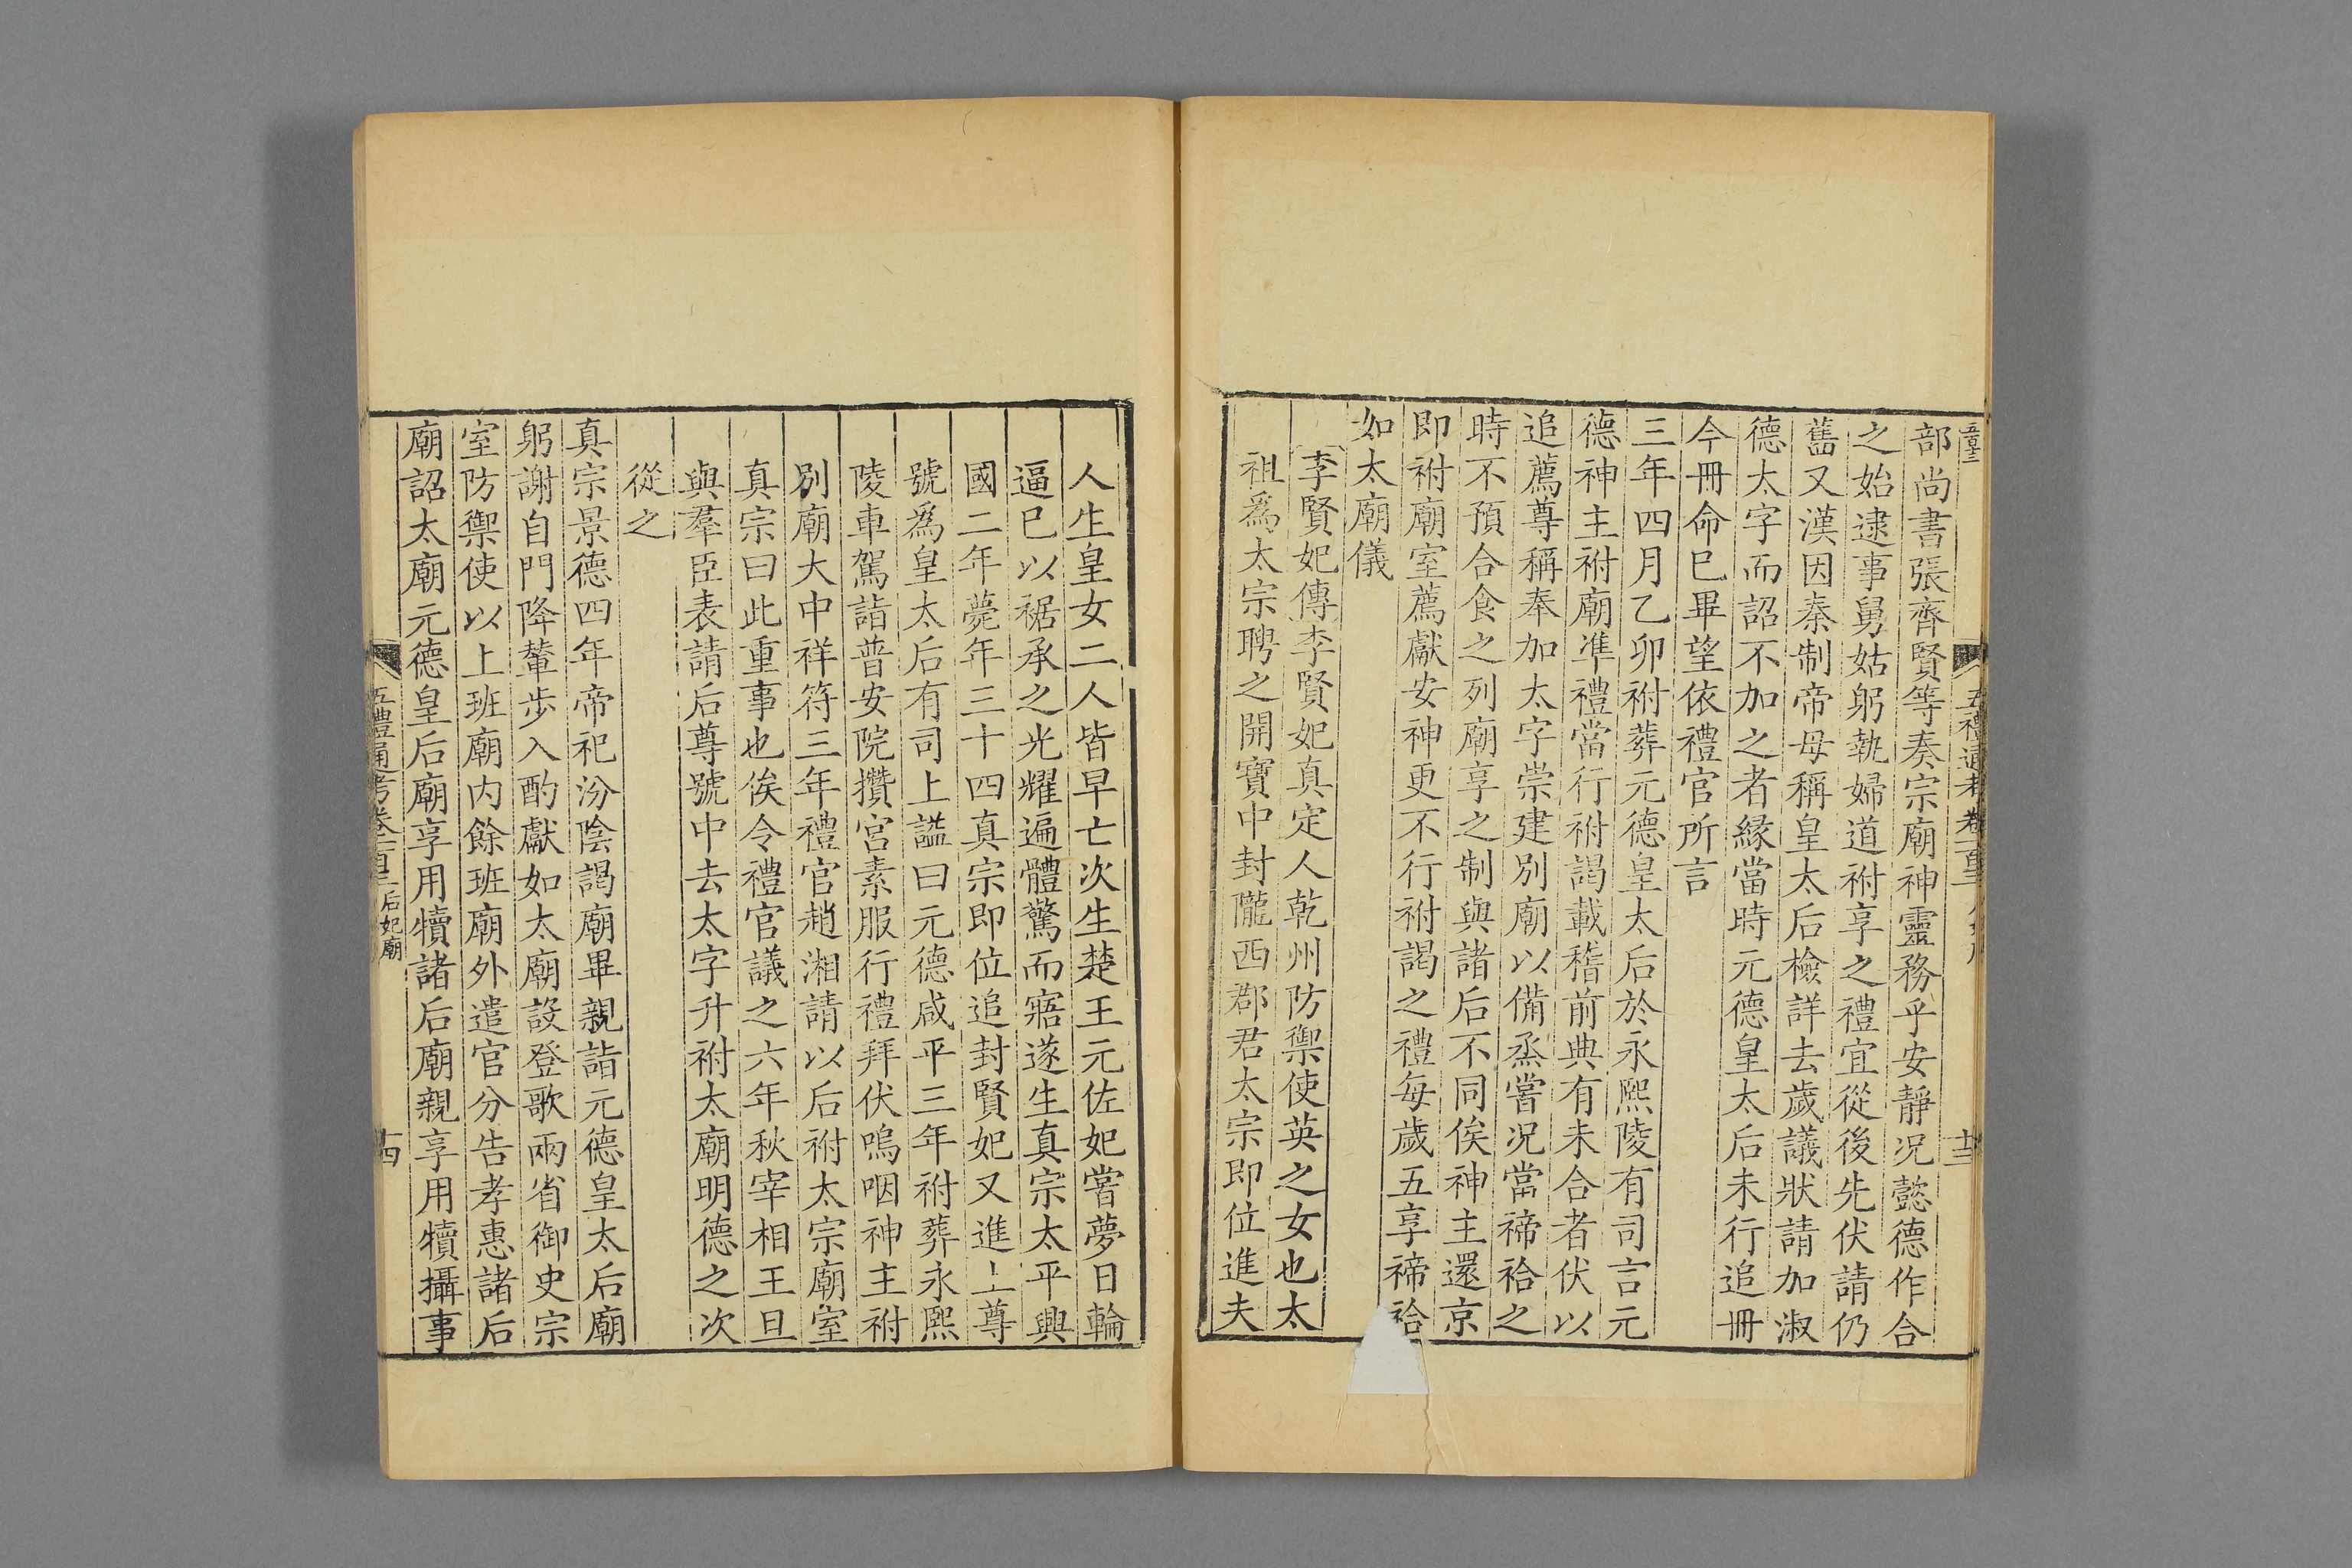 部尚書張齊賢等奏宗廟神靈務乎安靜况懿德作合
之始逮事舅姑躬執婦道祔享之禮宜從後先伏請仍
舊又漢因秦制帝母稱皇太后檢詳去歲議狀請加淑
德太字而詔不加之者緣當時元德皇太后未行追冊
今冊命巳畢望依禮官所言
三年四月乙卯祔葬元德皇太后於永熙陵有司言元
德神主祔廟準禮當行祔謁載稽前典有未合者伏以
追薦尊稱奉加太字崇建別廟以備烝嘗况當禘祫之
時不預合食之列廟享之制與諸后不同俟神主還京
即祔廟室薦獻安神更不行祔謁之禮每歲五享禘祫
如太廟儀
李賢妃傳李賢妃真定人乾州防禦使英之女也太
祖爲太宗聘之開寶中封隴西郡君太宗即位進夫
人生皇女二人皆早亡次生楚王元佐妃嘗夢日輪
逼巳以裾承之光耀遍體驚而寤遂生真宗太平興
國二年薨年三十四真宗即位追封賢妃又進上尊
號爲皇太后有司上謚曰元德咸平三年祔葬永熙
陵車駕詣普安院攢宮素服行禮拜伏嗚咽神主祔
別廟大中祥符三年禮官趙湘請以后祔太宗廟室
真宗曰此重事也俟令禮官議之六年秋宰相王旦
與羣臣表請后尊號中去太字升祔太廟明德之次
從之
真宗景德四年帝祀汾陰謁廟畢親詣元德皇太后廟
躬謝自門降輦步入酌獻如太廟設登歌兩省御史宗
室防禦使以上班廟内餘班廟外遣官分告孝惠諸后
廟詔太廟元德皇后廟享用犢諸后廟親享用犢攝事
五禮通考卷一百三 后妃廟
十四